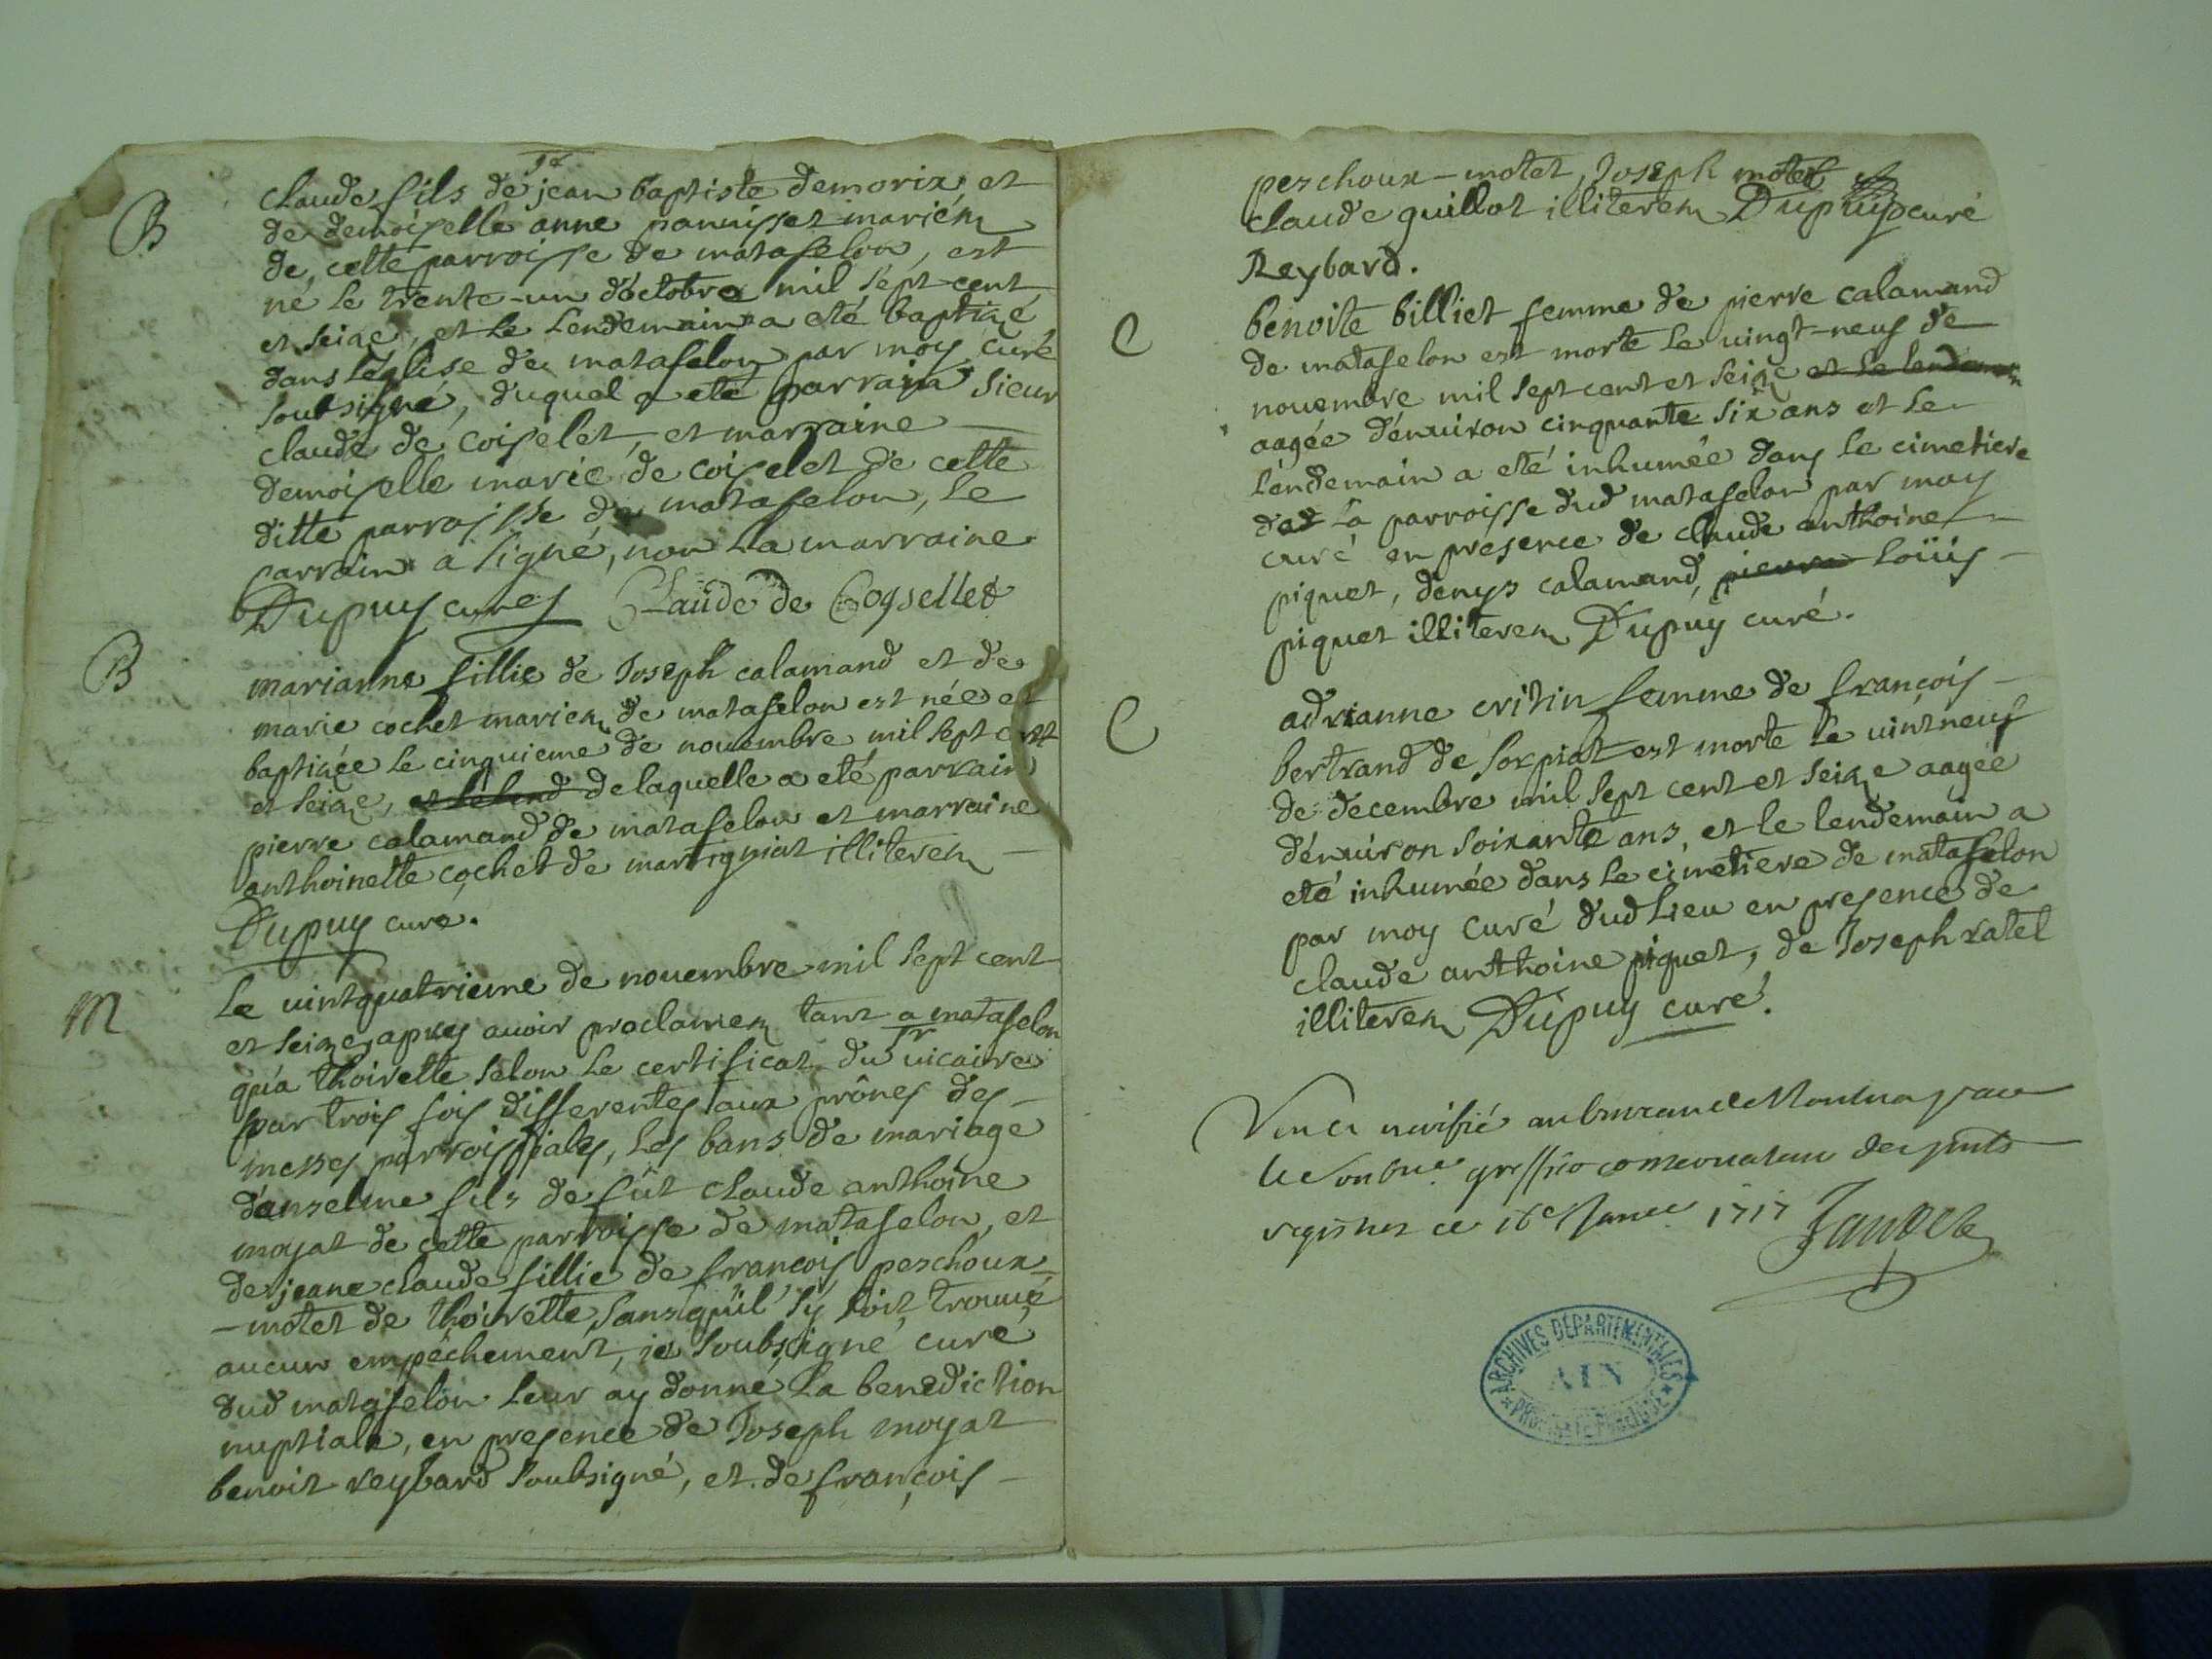 B
claude fils de jean baptiste demorix et
de demoiselle anne panisset mariéz
de cette parroisse de matafelon, est
né le trente-un d'octobre mil sept cent
et seize, et le lendemain a eté baptizé
dans l'église de matafelon par moy curé
soubsigné, duquel a eté parrain sieur
claude de coiselet, et marraine
demoiselle marie de coiselet de cette
ditte parroisse de matafelon, le
parrain a signé, non la marraine
Dupuy curé Claude de Coysellet
B
marianne fillie de Joseph calamand et de
marie cochet mariez de matafelon est née et
baptizée le cinquieme de nouembre mil sept cent
et seize, et le lend de laquelle a eté parrain
pierre calamand de matafelon et marraine
anthoinette cochet de martigniat illiterez
Dupuy curé.
M
Le vintquatrieme de nouembre mil sept cent
et seize, apres auoir proclamez tant a matafelon
qu'a thoirette selon le certificat du sr uicaire
par trois fois differentes aux prônes des
messes parroissiales, les bans de mariage
d'anselme fils de fût claude anthoine
moyat de cette parroisse de matafelon, et
de jeane claude fillie de françois peschoux
-motet de thoirette, sans qu'il s'y soit trouué
aucun empêchement, je soubsigné curé
dud matafelon leur ay donné la benediction
nuptiale, en presence de Joseph moyat
benoit reybard soubsigné, et de françois
peschoux-motet, Joseph motet
claude guillot illiterez Dupuy curé
Reybard.
C
benoite billiet femme de pierre calamand
de matafelon est morte le uingt-neuf de
nouembre mil sept cent et seize et le lendemain
aagée d'enuiron cinquante six ans et le
lendemain a eté inhumée dans le cimetiere
de la parroisse dud matafelon par moy
curé en presence de claude anthoine
piquet, denys calamand, pierre loüis
piquet illiterez Dupuy curé.
C
adrianne critin femme de françois
bertrand de sorpiat est morte le uintneuf
de decembre mil sept cent et seize aagée
d'enuiron soixante ans, et le lendemain a
eté inhumée dans le cimetiere de matafelon
par moy curé dud lieu en presence de
claude anthoine piquet, de Joseph ratel
illiterez Dupuy curé.
Veu et verifié au bureau de
greffier conservateur des
registres ce 16e Janvr 1717
ARCHIVES DÉPARTEMENTALES
AIN